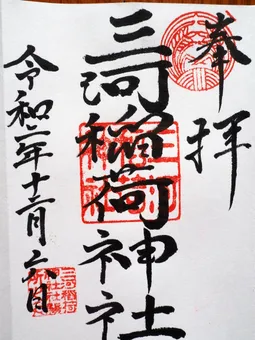 奉拝
三河稲荷神社
令和二年十二月六日
三河稲荷